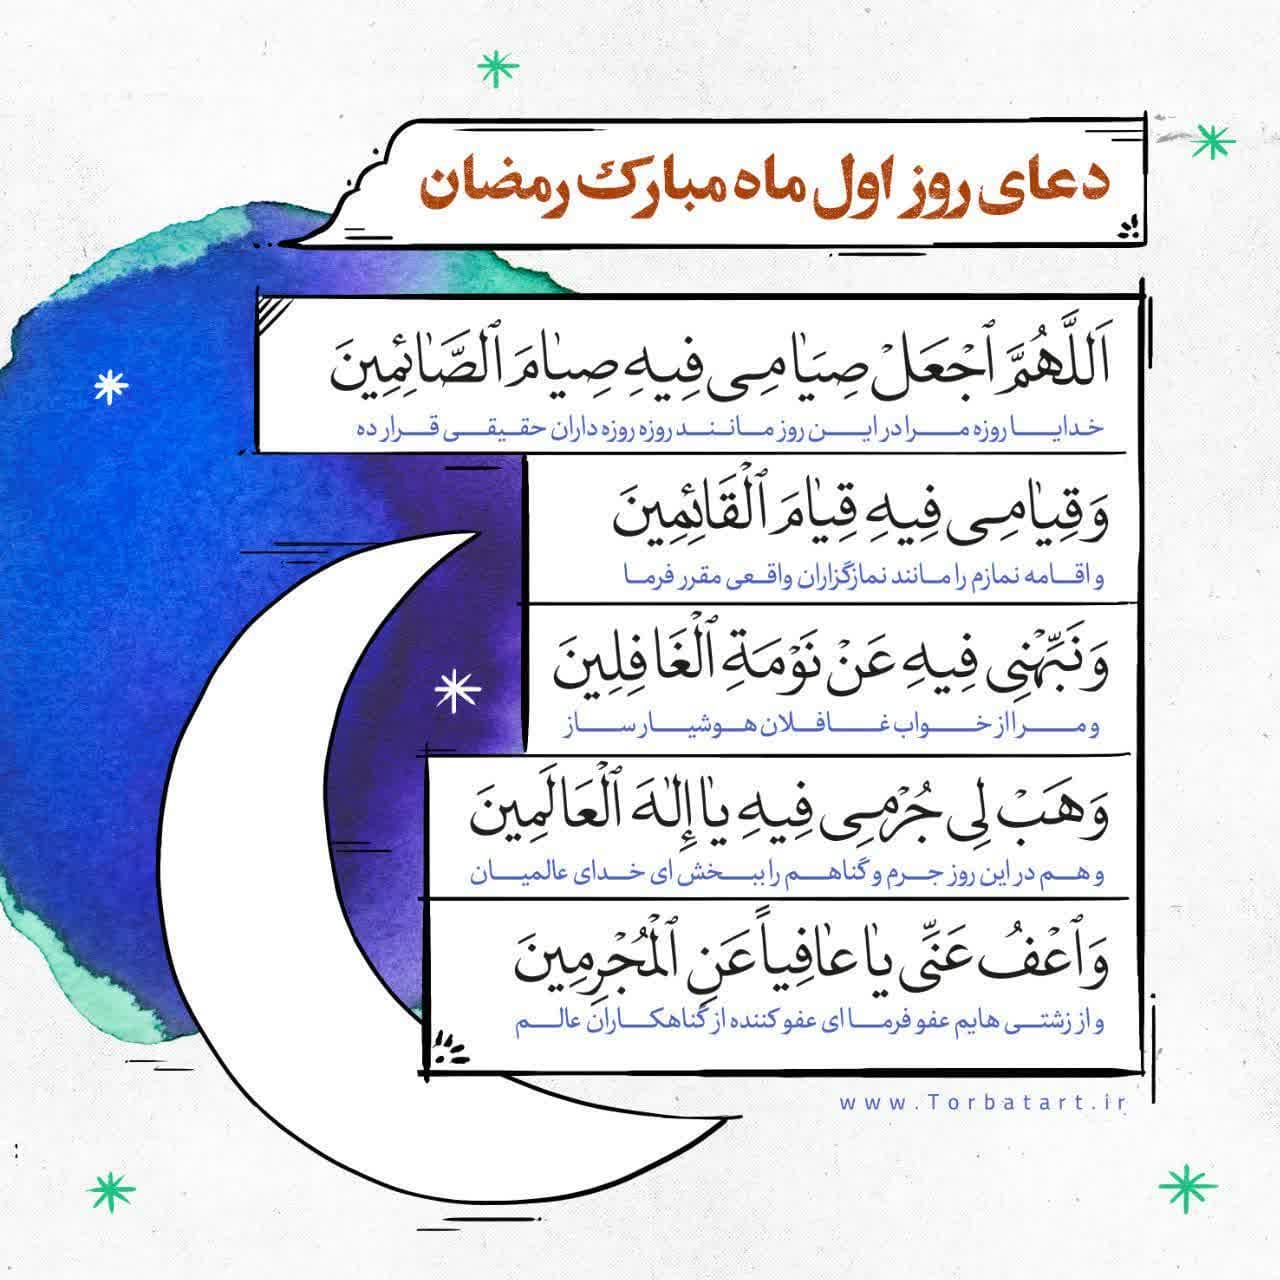 دعای روز اول ماه مبارک رمضان
اَللَّهُمَّ ٱجْعَلْ صِيَامِى فِيهِ صِيَامَ ٱلصَّائِمِينَ
خدایا روزه مرا در این روز مانند روزه روزه داران حقیقی قرار ده
وَقِيَامِى فِيهِ قِيَامَ ٱلْقَائِمِينَ
و اقامه نمازم را مانند نمازگزاران واقعی مقرر فرما
وَنَبِّهْنِى فِيهِ عَنْ نَوْمَةِ ٱلْغَافِلِينَ
و مرا از خواب غافلان هوشیار ساز
وَهَبْ لِى جُرْمِى فِيهِ يَا إِلٰهَ ٱلْعَالَمِينَ
و هم در این روز جرم و گناهم را ببخش ای خدای عالمیان
وَٱعْفُ عَنِّى يَا عَافِياً عَنِ ٱلْمُجْرِمِينَ
و از زشتی هایم عفو فرما ای عفو کننده از گناهکاران عالم
www.Torbatart.ir